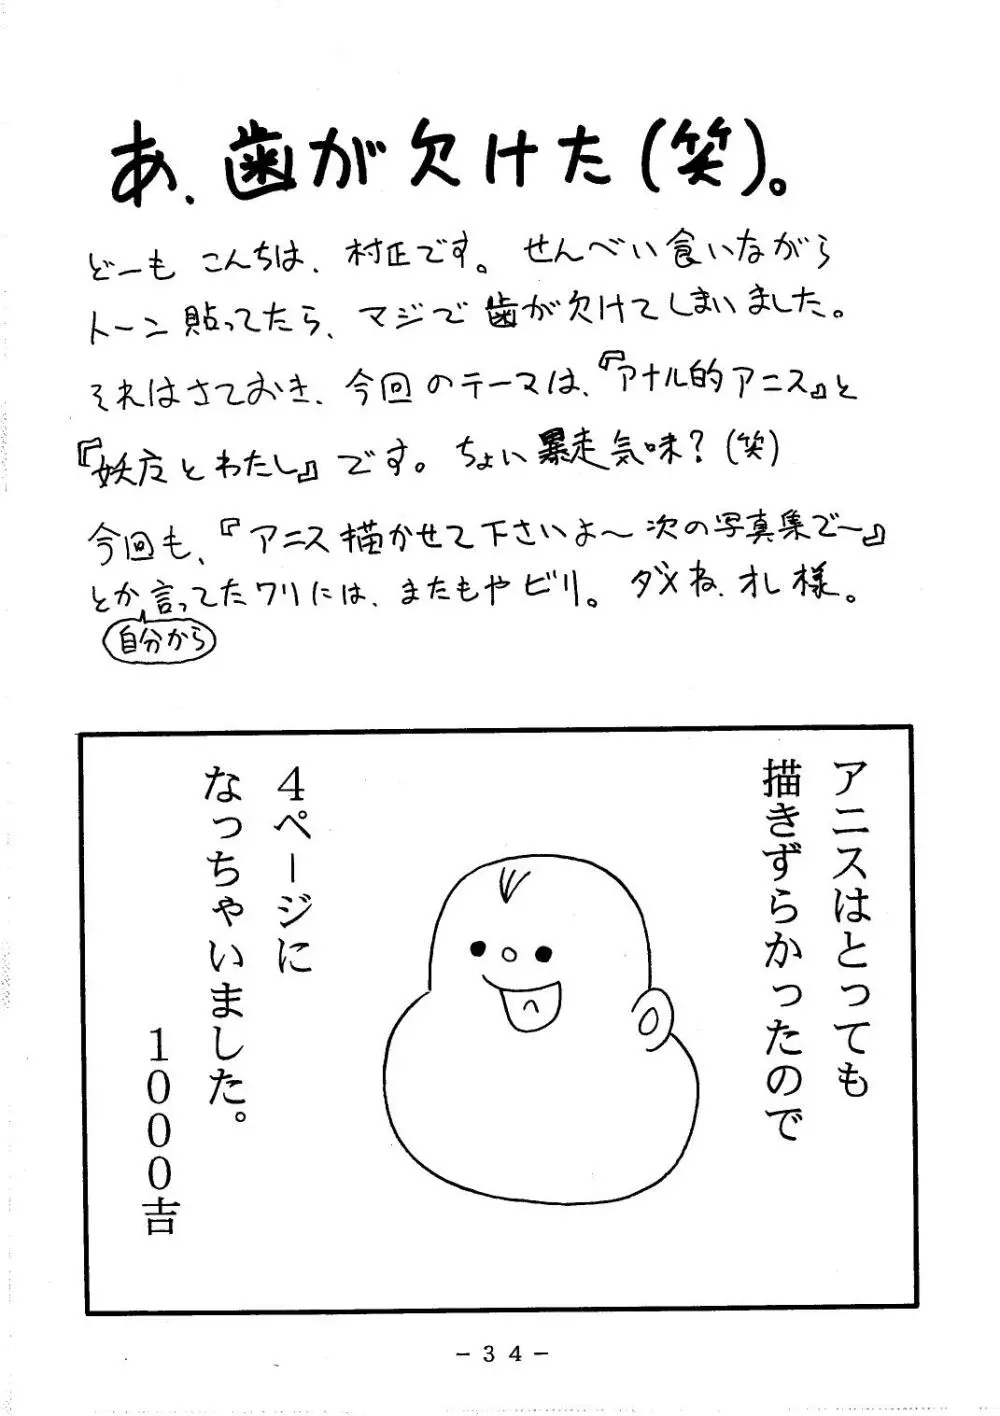 あ、歯が欠けた(笑)。
どーも こんちは、村正です。せんべい食いながら
トーン貼ってたら、マジで歯が欠けてしまいました。
それはさておき、今回のテーマは、『アナル的アニス』と
『妖広とわたし』です。ちょい暴走気味?(笑)
今回も、『アニス描かせて下さいよ〜次の写真集で〜』
とか言ってたワリには、またもやビリ。ダメね、オレ様。
自分から
アニスはとっても
描きずらかったので
4ページに
なっちゃいました。
1000吉
-34-